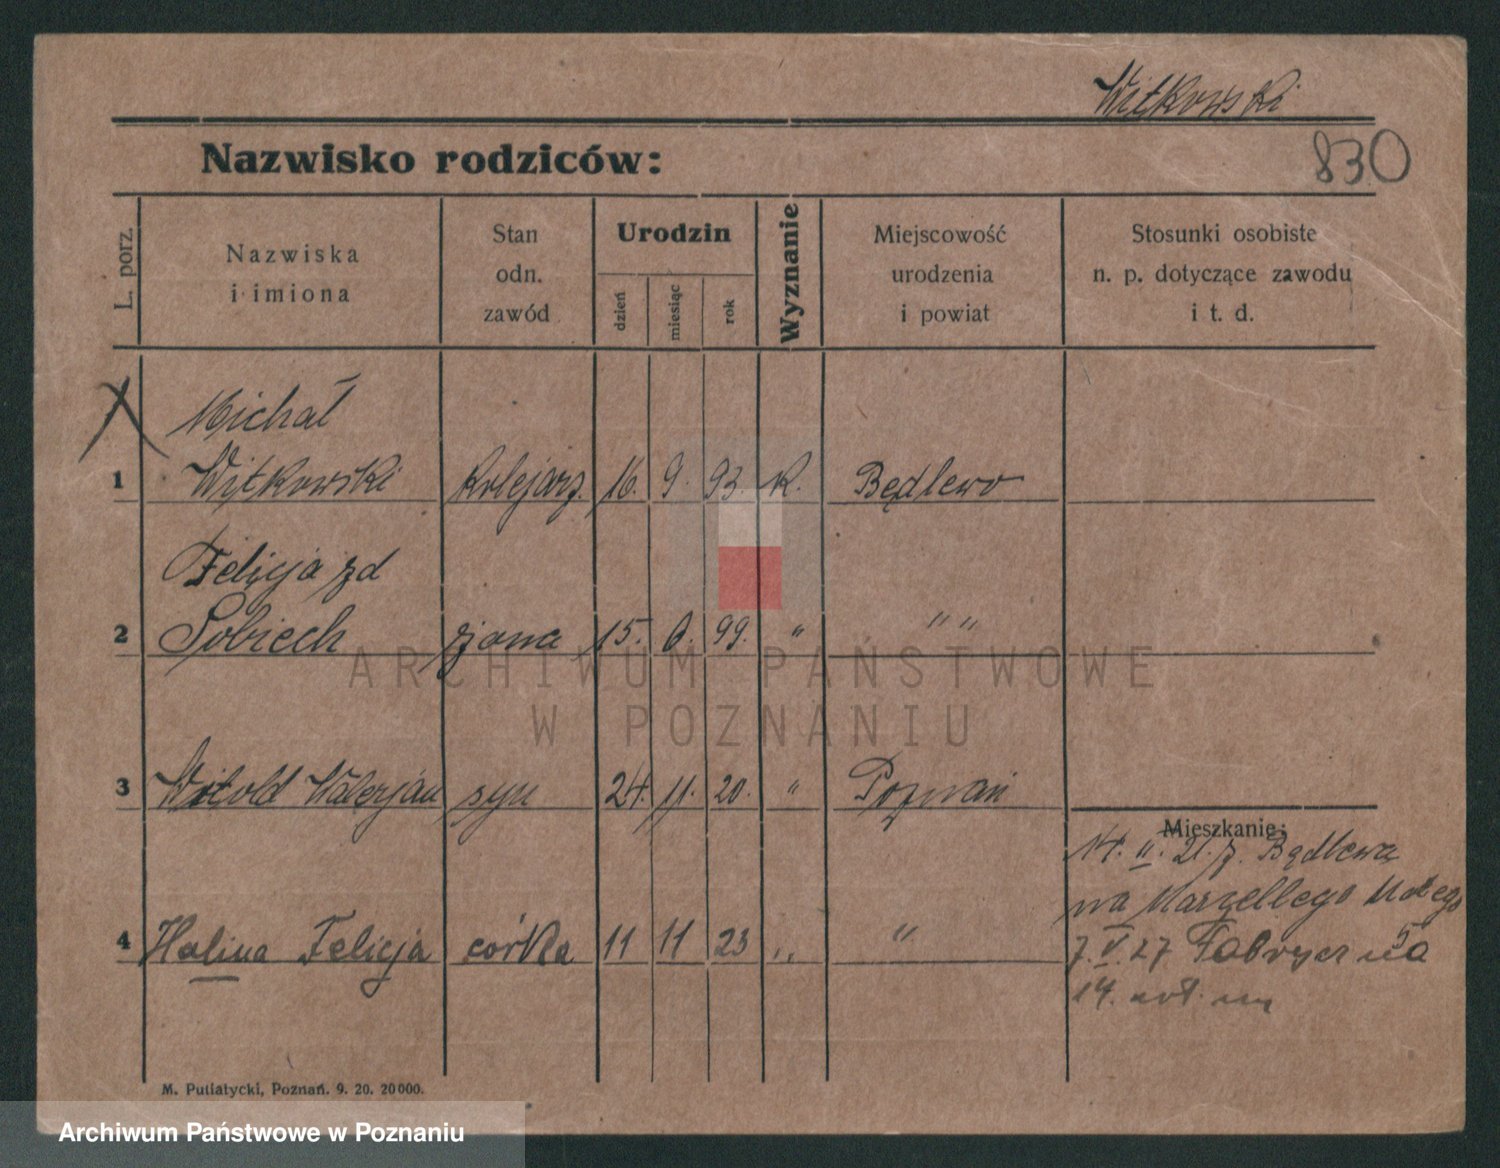 Witkowski
Nazwisko rodziców:
830
L. porz.
Nazwiska
i imiona
Stan
odn.
zawód
Urodzin
dzień
miesiąc
rok
Wyznanie
Miejscowość
urodzenia
i powiat
Stosunki osobiste
n. p. dotyczące zawodu
i t. d.
Michał
1 Witkowski kolejarz. 16. 9. 93. K. Będlewo
Felicja zd
2 Sobiech żona 15. 6. 99. " " "
ARCHIWUM PAŃSTWOWE
W POZNANIU
3 Witold Walerjan syn 24. 11. 20. " Poznań
Mieszkanie:
14. II. 21. z. Będlewa
na Marzellego
4 Halina Felicja córka 11 11 23 " "
7. V. 27 Fabryczna
14.
M. Putiatycki, Poznań. 9. 20. 20000.
Archiwum Państwowe w Poznaniu